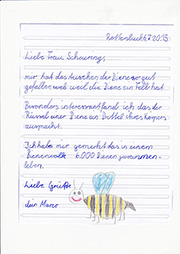 Rottenbuch 6.7.2015
Liebe Frau Schwerings
mir hat das zuschen der Biene so gut
gefallen weil weil die Biene ein Fell hat.
Besonders interresant fand ich das der
Rüssel einer Biene ein Drittel ihres körpers
ausmacht.
Ich habe mir gemerkt das in einem
Bienenvolk 6.000 Bienen zusammen-
leben.
Liebe Grüße
dein Marco